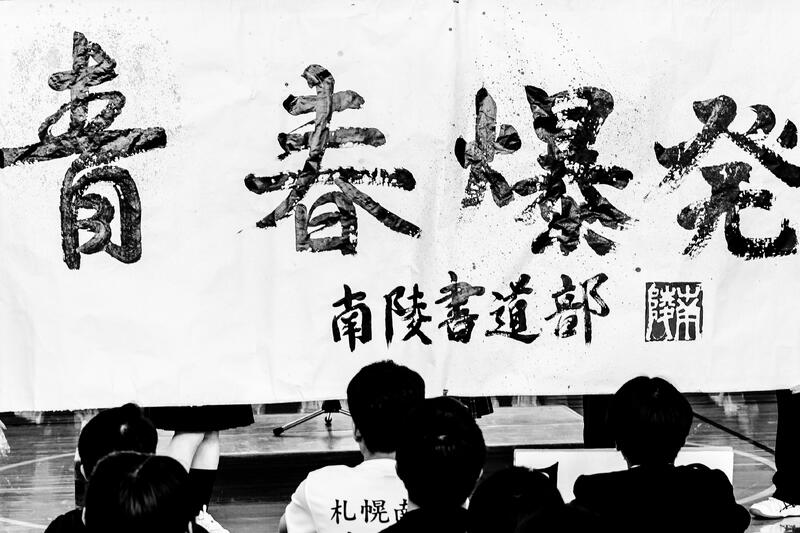 青春爆発
南陵書道部
南陵
札幌南